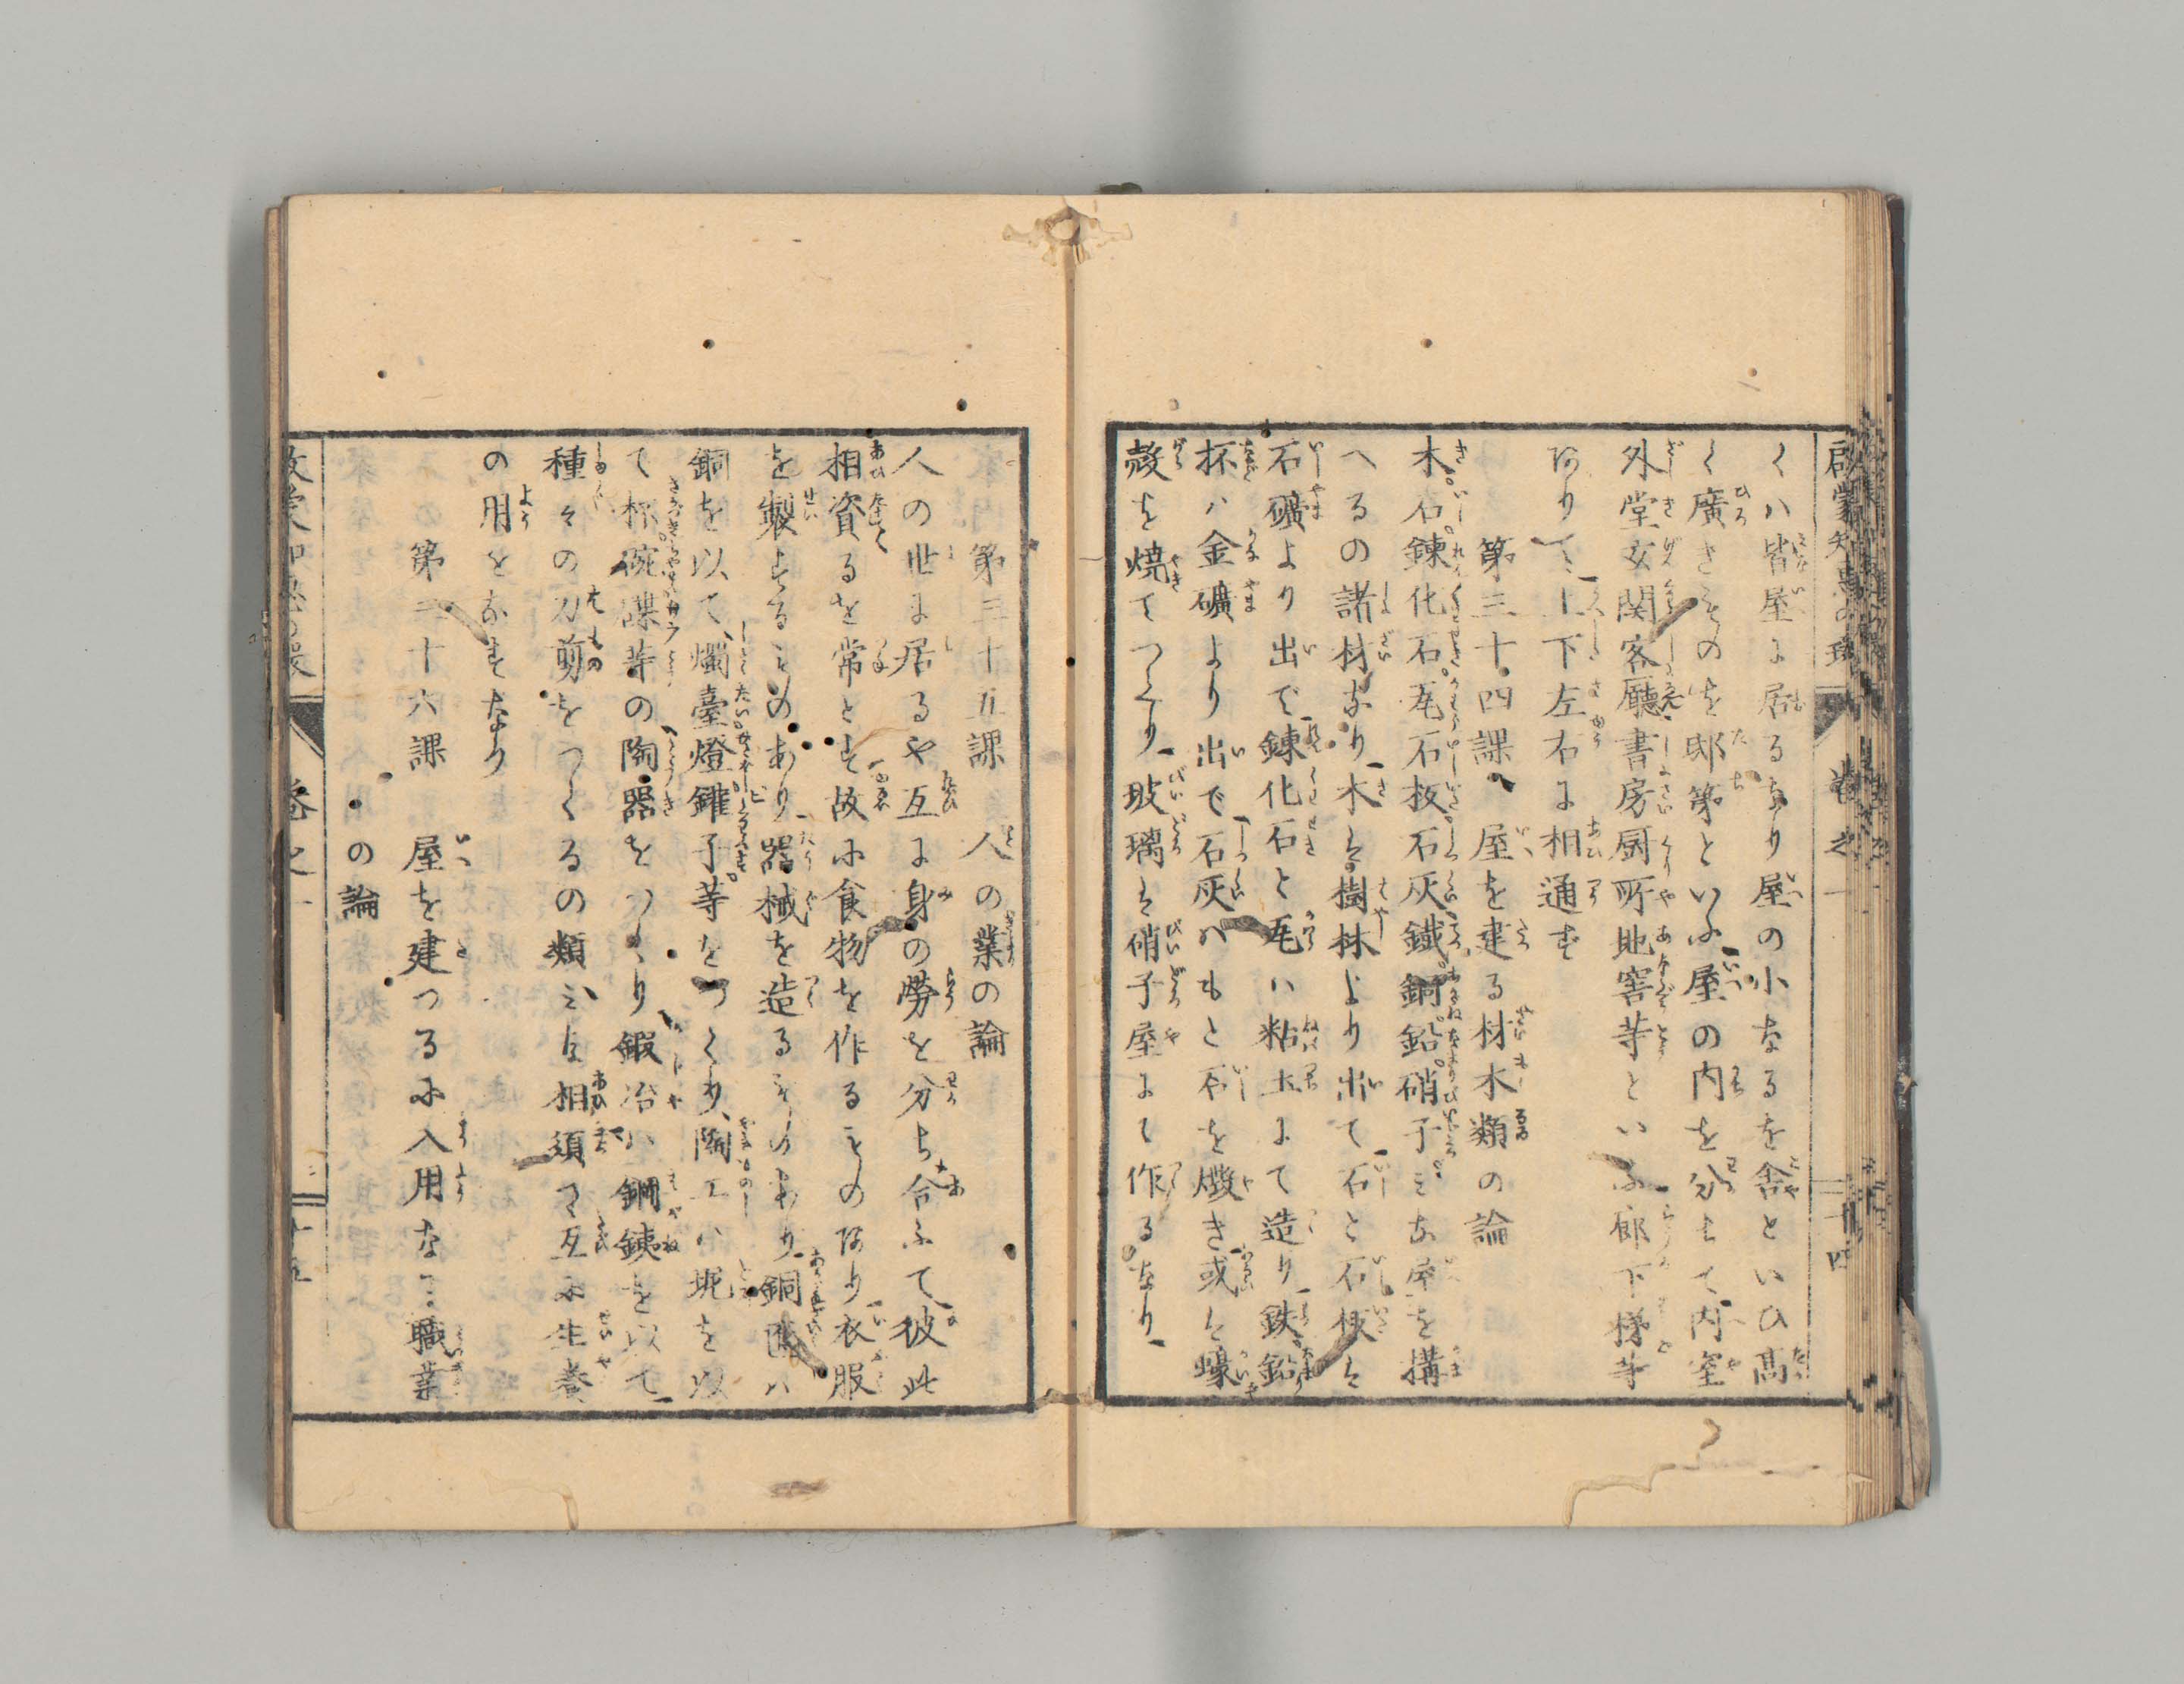 啓蒙知恵の環
巻之一
二十四
くハ皆屋に居るなり屋の小なるを舎といひ高
く廣きものを邸第といふ屋の内を分ちて内室
外堂玄関客廳書房厨所地窖等といふ廊下梯等
ありて上下左右に相通ず
第三十四課 屋を建る材木類の論
木石錬化石瓦石板石灰鐵銅鉛硝子みな屋を搆
へるの諸材なり木は樹林より出て石と石板は
石礦より出で錬化石と瓦ハ粘土にて造り鉄鉛
杯ハ金礦より出で石灰ハもと石を燬き或は蠔
殻を焼てつくり玻璃は硝子屋にて作るなり
第三十五課 人の業の論
人の世に居るや互に身の勞を分ち合ふて彼此
相資るを常とす故に食物を作るものあり衣服
を製するものあり器械を造るものあり銅匠ハ
銅を以て燭臺燈鑵子等をつくり陶工ハ坭を以
て杯碗碟等の陶器をつくり鍛冶ハ鋼鉄を以て
種々の刀剪をつくるの類みな相須て互に生養
の用をなすなり
第三十六課 屋を建つるに入用なる職業
の論